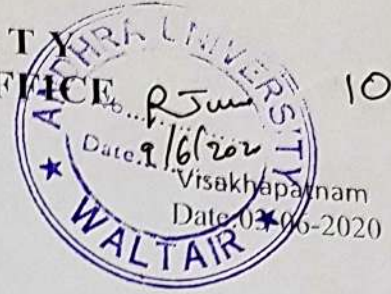 T Y
FFICE
10
ANDHRA UNIVERSITY
Date. 9/6/202
Visakhapatnam
Date:03-06-2020
★ WALTAIR ★